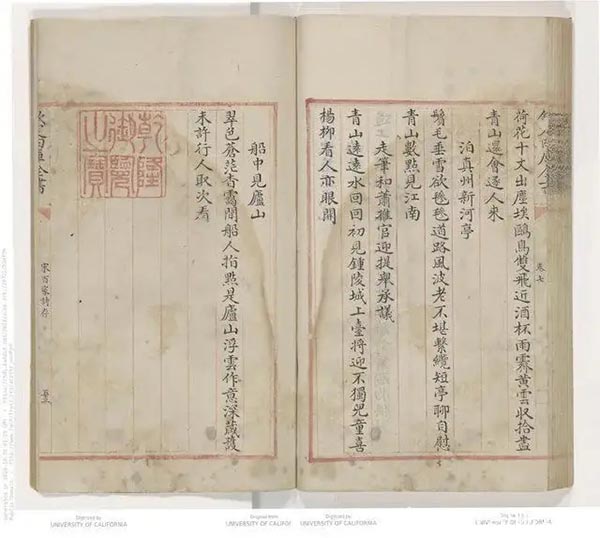 卷七
荷花十丈出塵埃鷗鳥雙飛近酒杯雨霽黃雲收拾盡
青山還會逐人來
泊真州新河亭
鬢毛垂雪欲毿毿道路風波老不堪繫纜短亭聊自慰
青山數點見江南
走筆和蕭推官迎提舉承議
青山遠遠水回回初見鍾陵城上臺將迎不獨兒童喜
楊柳看人亦眼開
船中見廬山
翠色蒼茫杳靄間船人指點是廬山浮雲作意深藏護
未許行人取次看
乾隆
御覽
之寶
宋百家詩存
Digitized by
UNIVERSITY OF CALIFORNIA
Original from
UNIVERSITY OF CALIFOR
Digitized by
UNIVERSITY OF CALIFORNIA